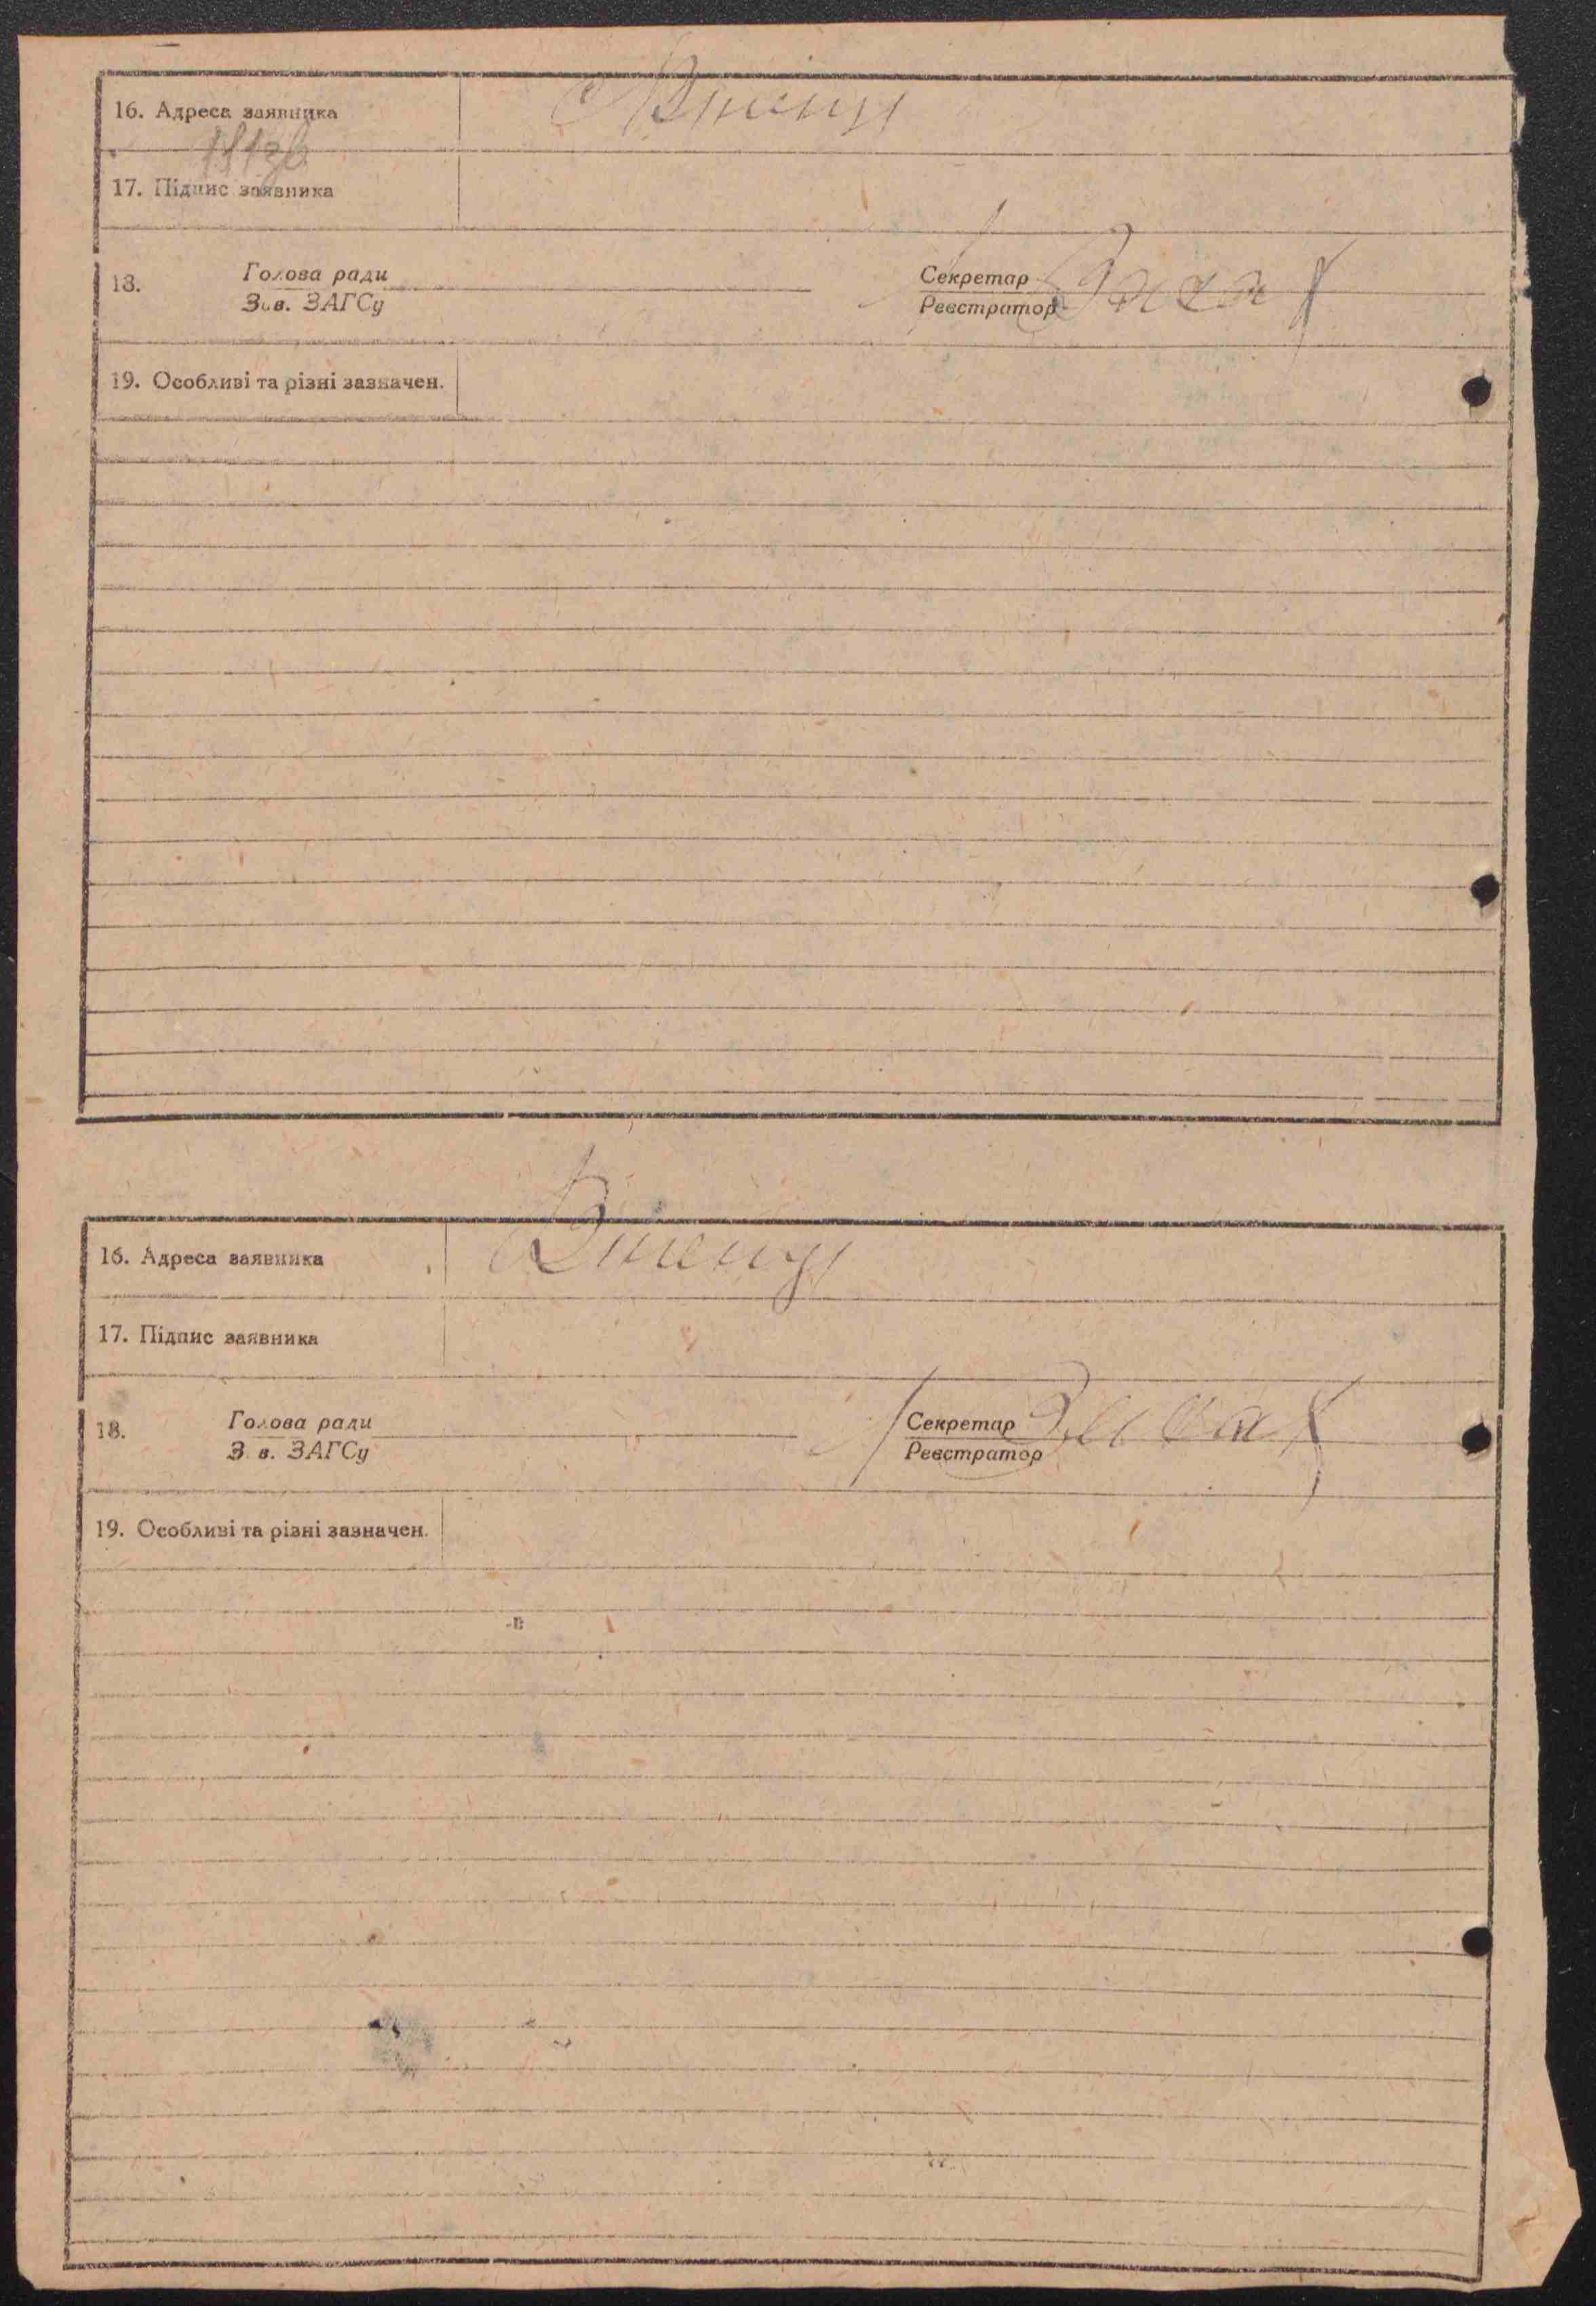 16. Адреса заявника
17. Підпис заявника
18. Голова ради Секретар
Зав. ЗАГСу Реєстратор
19. Особливі та різні зазначен.
16. Адреса заявника
17. Підпис заявника
18. Голова ради Секретар
З в. ЗАГСу Реєстратор
19. Особливі та різні зазначен.